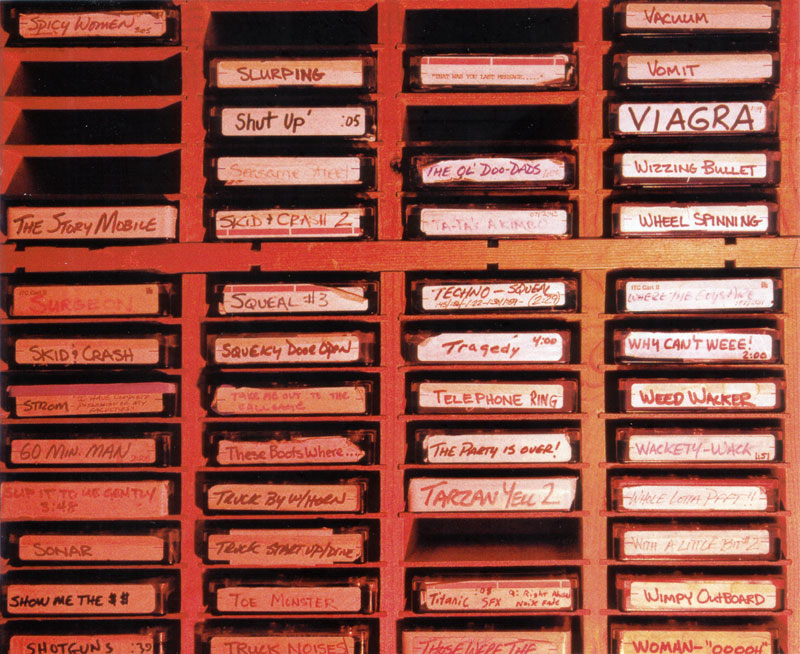 SPICY WOMEN
:05
THE STORY MOBILE
SURGEON
SKID & CRASH
STROM
60 MIN. MAN
SLIP IT TO ME GENTLY
3:48
SONAR
SHOW ME THE $$
SHOTGUNS :30
SLURPING
Shut Up' :05
SKID & CRASH 2
SQUEAL #3
SQUEAKY DOOR OPEN
TAKE ME OUT TO THE
BALLGAME
These Boots Where....
TRUCK BY W/HORN
TRUCK START UP/
TOE MONSTER
TRUCK NOISES
"THAT WAS YOUR LAST MESSAGE....."
THE OL' DOO-DADS
TA-TA'S AKIMBO
TECHNO - SQUEAL
(2:29)
Tragedy 4:00
TELEPHONE RING
THE PARTY IS OVER!
TARZAN YELL 2
Titanic SFX
THOSE WERE THE
VACUUM
VOMIT
VIAGRA
WIZZING BULLET
WHEEL SPINNING
WHERE THE BOYS ARE
WHY CAN'T WEEE!
2:00
WEED WACKER
WACKETY-WACK
1:51
WHOLE LOTTA
WITH A LITTLE BIT #2
WIMPY OUTBOARD
WOMAN-"OOOOH"